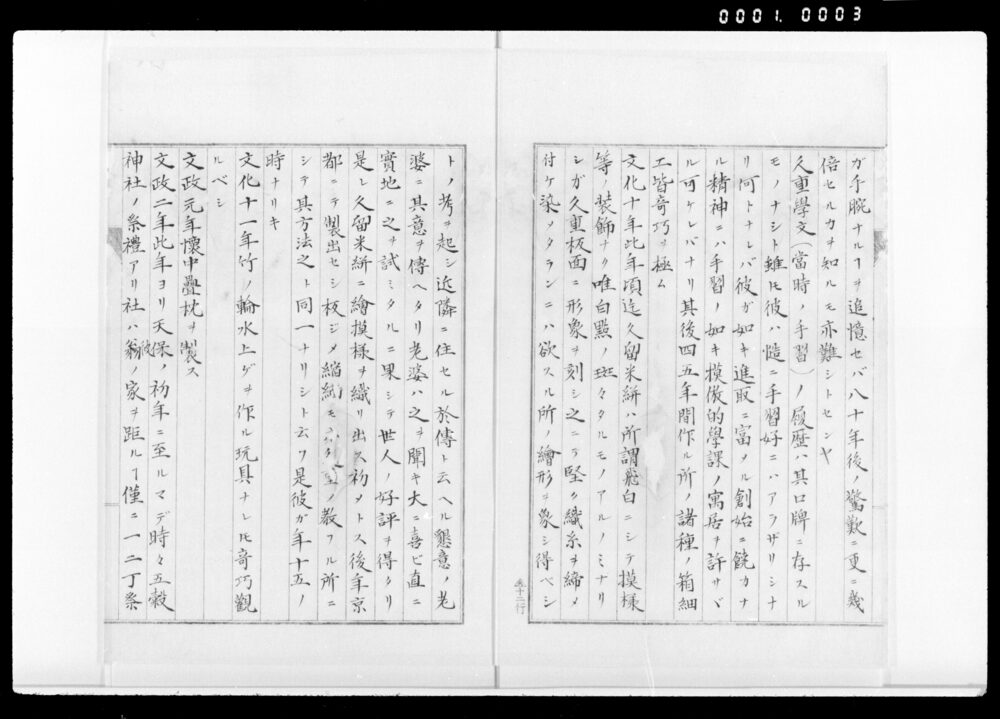 0001. 0003
ガ手腕ナルヿヲ追憶セバ八十年後ノ驚歎ニ更ニ幾
倍セルカヲ知ルモ亦難シトセンヤ
久重學文（當時ノ手習）ノ履歴ハ其口牌ニ存スル
モノナシト雖𪜈彼ハ慥ニ手習好ニハアラザリシナ
リ何トナレバ彼ガ如キ進取ニ富メル創始ニ饒カナ
ル精神ニハ手習ノ如キ摸倣的學課ノ寓居ヲ許サヾ
ル可ケレバナリ其後四五年間作ル所ノ諸種ノ箱細
工皆奇巧ヲ極ム
文化十年此年頃迄久留米絣ハ所謂飛白ニシテ摸様
等ノ装飾ナク唯白點ノ斑々タルモノアルノミナリ
シガ久重板面ニ形象ヲ刻シ之ニテ堅ク織糸ヲ締メ
付ケ染メタランニハ欲スル所ノ繪形ヲ象シ得ベシ
十二行
トノ考ヲ起シ近隣ニ住セル於傳ト云ヘル懇意ノ老
婆ニ其意ヲ傳ヘタリ老婆ハ之ヲ聞キ大ニ喜ビ直ニ
實地ニ之ヲ試ミタルニ果シテ世人ノ好評ヲ得タリ
是レ久留米絣ニ繪摸様ヲ織リ出ス初メトス後年京
都ニテ製出セシ板ジメ縮緬モ久重ノ教フル所ニ
シテ其方法之ト同一ナリシト云フ是彼ガ年十五ノ
時ナリキ
文化十一年竹ノ輪水上ゲヲ作ル玩具ナレ𪜈奇巧觀
ルベシ
文政元年懷中疊枕ヲ製ス
文政二年此年ヨリ天保ノ初年ニ至ルマデ時々五穀
神社ノ祭禮アリ社ハ彼翁ノ家ヲ距ルヿ僅ニ一二丁祭